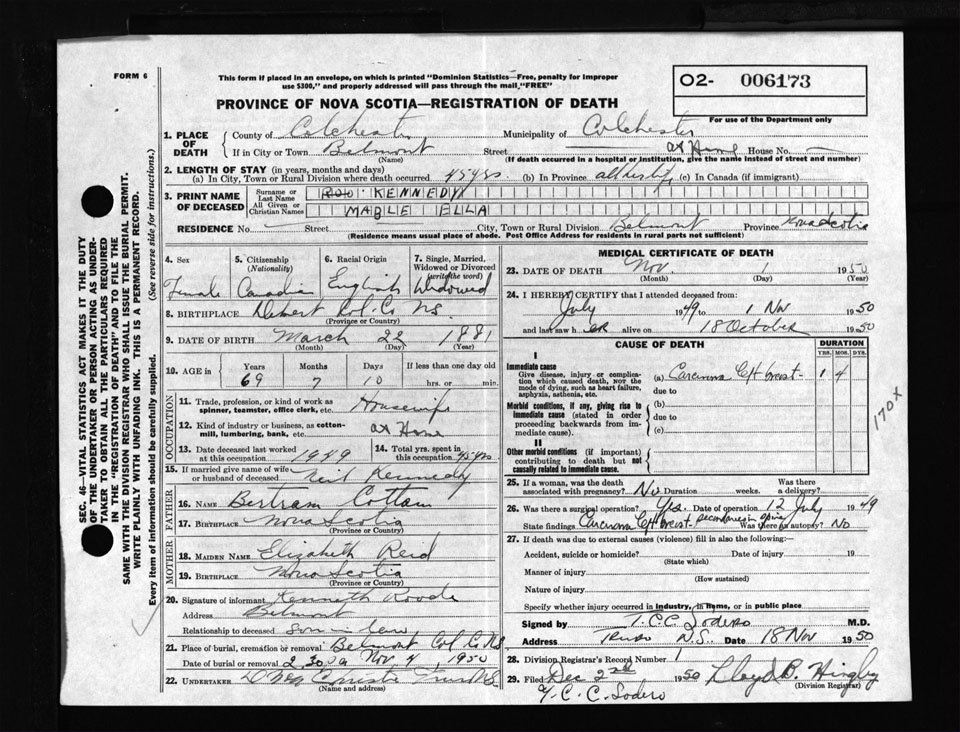 FORM 6
This form if placed in an envelope, on which is printed "Dominion Statistics—Free, penalty for improper
use $300," and properly addressed will pass through the mail, "FREE"
O2- 006173
For use of the Department only
PROVINCE OF NOVA SCOTIA—REGISTRATION OF DEATH
SEC. 46—VITAL STATISTICS ACT MAKES IT THE DUTY
OF THE UNDERTAKER OR PERSON ACTING AS UNDER-
TAKER TO OBTAIN ALL THE PARTICULARS REQUIRED
IN THE "REGISTRATION OF DEATH" AND TO FILE THE
SAME WITH THE DIVISION REGISTRAR WHO SHALL ISSUE THE BURIAL PERMIT.
WRITE PLAINLY WITH UNFADING INK. THIS IS A PERMANENT RECORD.
Every item of information should be carefully supplied. (See reverse side for instructions.)
1. PLACE OF DEATH County of Colchester Municipality of Colchester
If in City or Town Belmont Street at Home House No. —
(Name) (If death occurred in a hospital or institution, give the name instead of street and number)
2. LENGTH OF STAY (in years, months and days)
(a) In City, Town or Rural Division where death occurred 45 yrs. (b) In Province all her life (c) In Canada (if immigrant)
3. PRINT NAME OF DECEASED Surname or Last Name KENNEDY
All Given or Christian Names MABLE ELLA
RESIDENCE No. — Street City, Town or Rural Division Belmont Province Nova Scotia
(Residence means usual place of abode. Post Office Address for residents in rural parts not sufficient)
4. Sex Female
5. Citizenship (Nationality) Canadian
6. Racial Origin English
7. Single, Married, Widowed or Divorced (write the word) Widowed
8. BIRTHPLACE Debert Col. Co NS.
(Province or Country)
9. DATE OF BIRTH March 22 1881
(Month) (Day) (Year)
10. AGE in Years 69 Months 7 Days 10 If less than one day old hrs. or min.
OCCUPATION
11. Trade, profession, or kind of work as spinner, teamster, office clerk, etc. Housewife
12. Kind of industry or business, as cotton-mill, lumbering, bank, etc. at Home
13. Date deceased last worked at this occupation 1949
14. Total yrs. spent in this occupation 45 yrs
15. If married give name of wife or husband of deceased Neil Kennedy
FATHER
16. NAME Bertram Cottam
17. BIRTHPLACE Nova Scotia
(Province or Country)
MOTHER
18. MAIDEN NAME Elizabeth Reid
19. BIRTHPLACE Nova Scotia
(Province or Country)
20. Signature of informant Kenneth Roode
Address Belmont
Relationship to deceased son in law
21. Place of burial, cremation or removal Belmont Col. Co NS
Date of burial or removal Nov 4, 1950
22. UNDERTAKER Truro N.S.
(Name and address)
MEDICAL CERTIFICATE OF DEATH
23. DATE OF DEATH Nov. 1 1950
(Month) (Day) (Year)
24. I HEREBY CERTIFY that I attended deceased from:
July 1949 to 1 Nov 1950
and last saw her alive on 18 October 1950
CAUSE OF DEATH
DURATION
YRS. MOS. DYS.
I
Immediate cause
Give disease, injury or complication which caused death, NOT the mode of dying, such as heart failure, asphyxia, asthenia, etc.
(a) Carcinoma left breast 1 4
due to
Morbid conditions, if any, giving rise to immediate cause (stated in order proceeding backwards from immediate cause).
(b)
due to
(c)
II
Other morbid conditions (if important) contributing to death but not causally related to immediate cause.
170x
25. If a woman, was the death associated with pregnancy? No Duration weeks. Was there a delivery?
26. Was there a surgical operation? Yes. Date of operation 12 July 1949
State findings Carcinoma left breast secondaries in spine Was there an autopsy? No
27. If death was due to external causes (violence) fill in also the following:—
Accident, suicide or homicide? Date of injury 19
(State which)
Manner of injury
(How sustained)
Nature of injury
Specify whether injury occurred in industry, in home, or in public place
Signed by T. C. C. Sodero M.D.
Address Truro N.S. Date 18 Nov 1950
28. Division Registrar's Record Number 1
29. Filed Dec 2nd 1950 Lloyd B. Higby
(Division Registrar)
T. C. C. Sodero